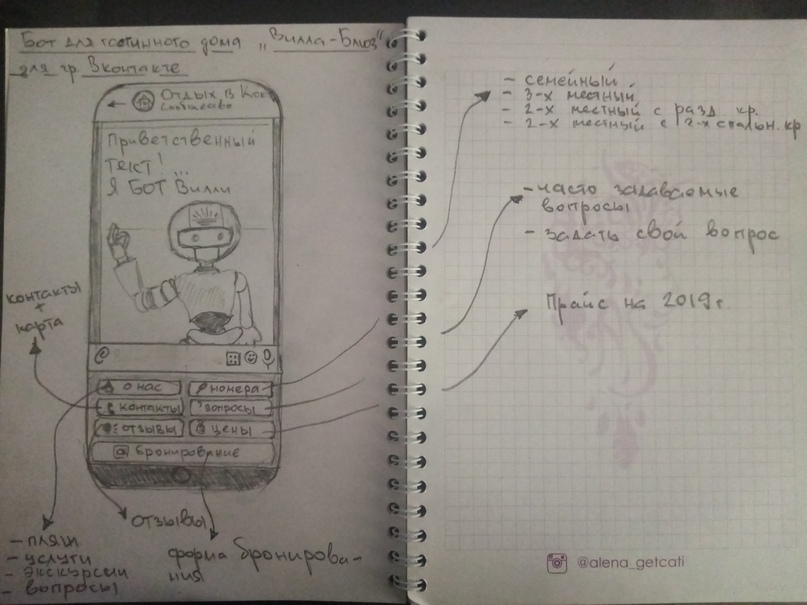 Бот для гостинного дома „Вилла-Блюз"
для гр. Вконтакте
Отдых в Кок
Сообщество
Приветственный
текст!...
Я БОТ Вилли
контакты
+
карта
о нас
номера
контакты
? вопросы
отзывы
цены
@ бронирование
отзывы
форма бронирова-
ния
- пляж
- услуги
- экскурсии
- вопросы
- семейный
- 3-х местный
- 2-х местный с разд. кр.
- 2-х местный с 2-х спальн. кр
- часто задаваемые
вопросы
- задать свой вопрос
Прайс на 2019г.
@alena_getcati